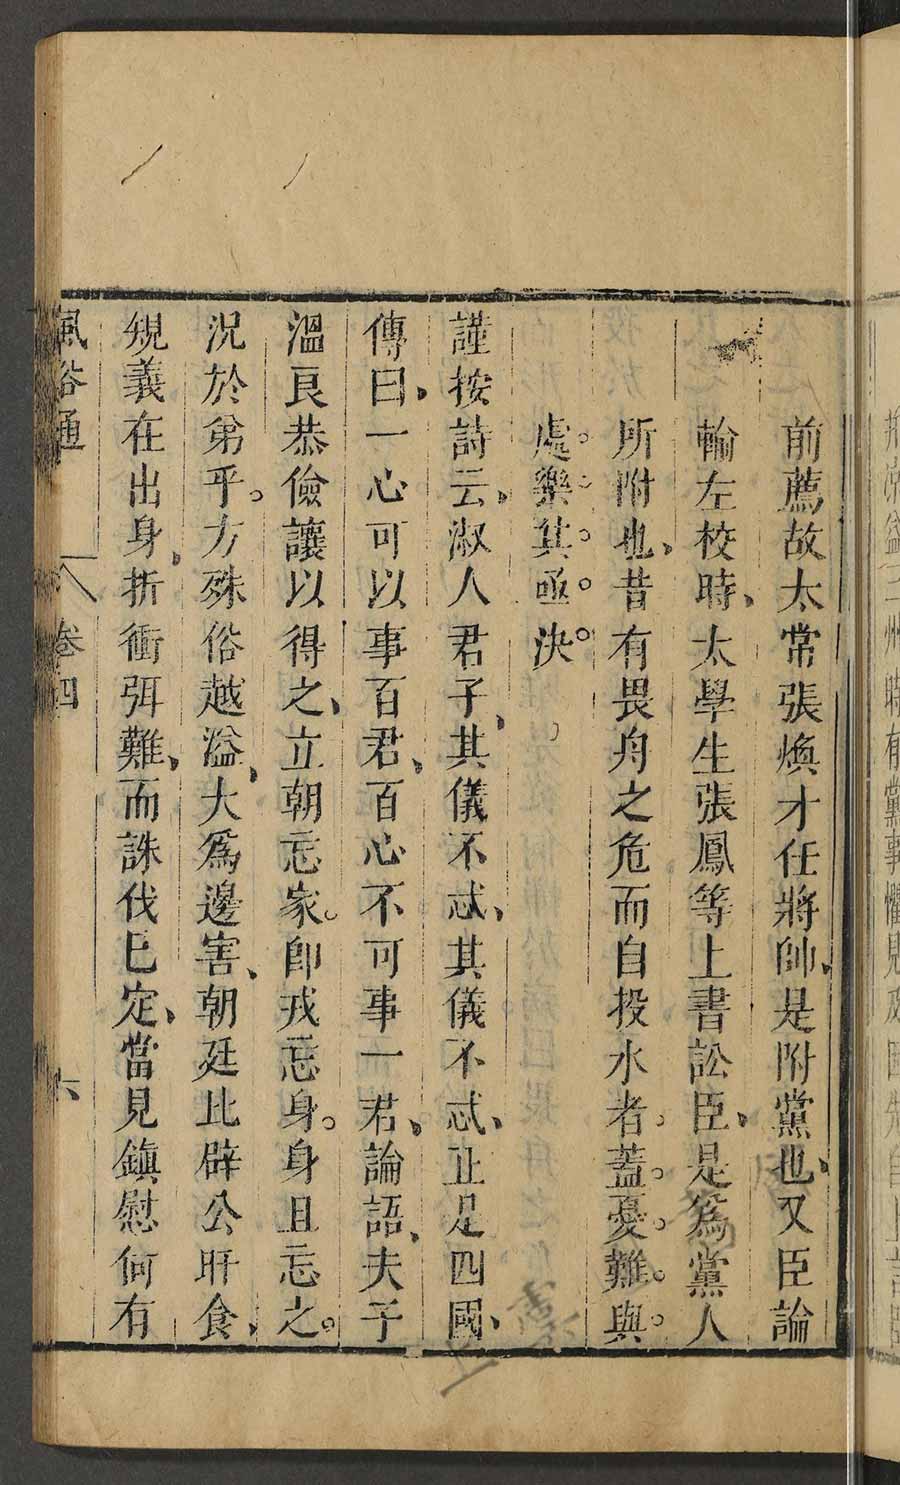 前薦故太常張煥才任將帥、是附黨也、又臣論
輸左校時、太學生張鳳等上書訟臣、是爲黨人
所附也、昔有畏舟之危而自投水者。蓋。憂。難。與。
處。樂。其。亟。決。
謹按詩云、淑人君子、其儀不忒、其儀不忒、正是四國、
傳曰、一心可以事百君、百心不可事一君、論語、夫子
溫良恭儉讓以得之、立朝忘家。卽戎忘身。身且忘之。
況於弟乎。方殊俗越溢、大爲邊害、朝廷比辟公旰食、
規義在出身、折衝弭難、而誅伐已定、當見鎭慰何有
風俗通 卷四 六